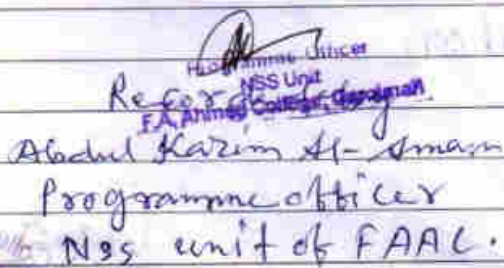 Programme Officer
NSS Unit
F.A. Ahmed College, Garoimari
Recorded by
Abdul Karim Al-Amam
Programme officer
Nss unit of FAAC.